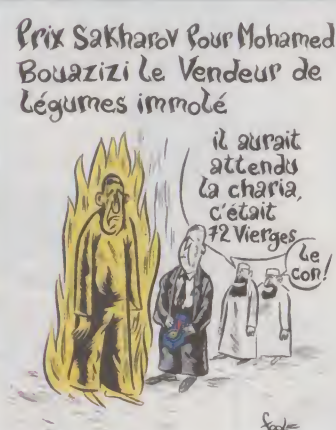 Prix Sakharov Pour Mohamed
Bouazizi Le Vendeur de
Légumes immolé
il aurait
attendu
la charia,
c'était
72 Vierges
Le
con!